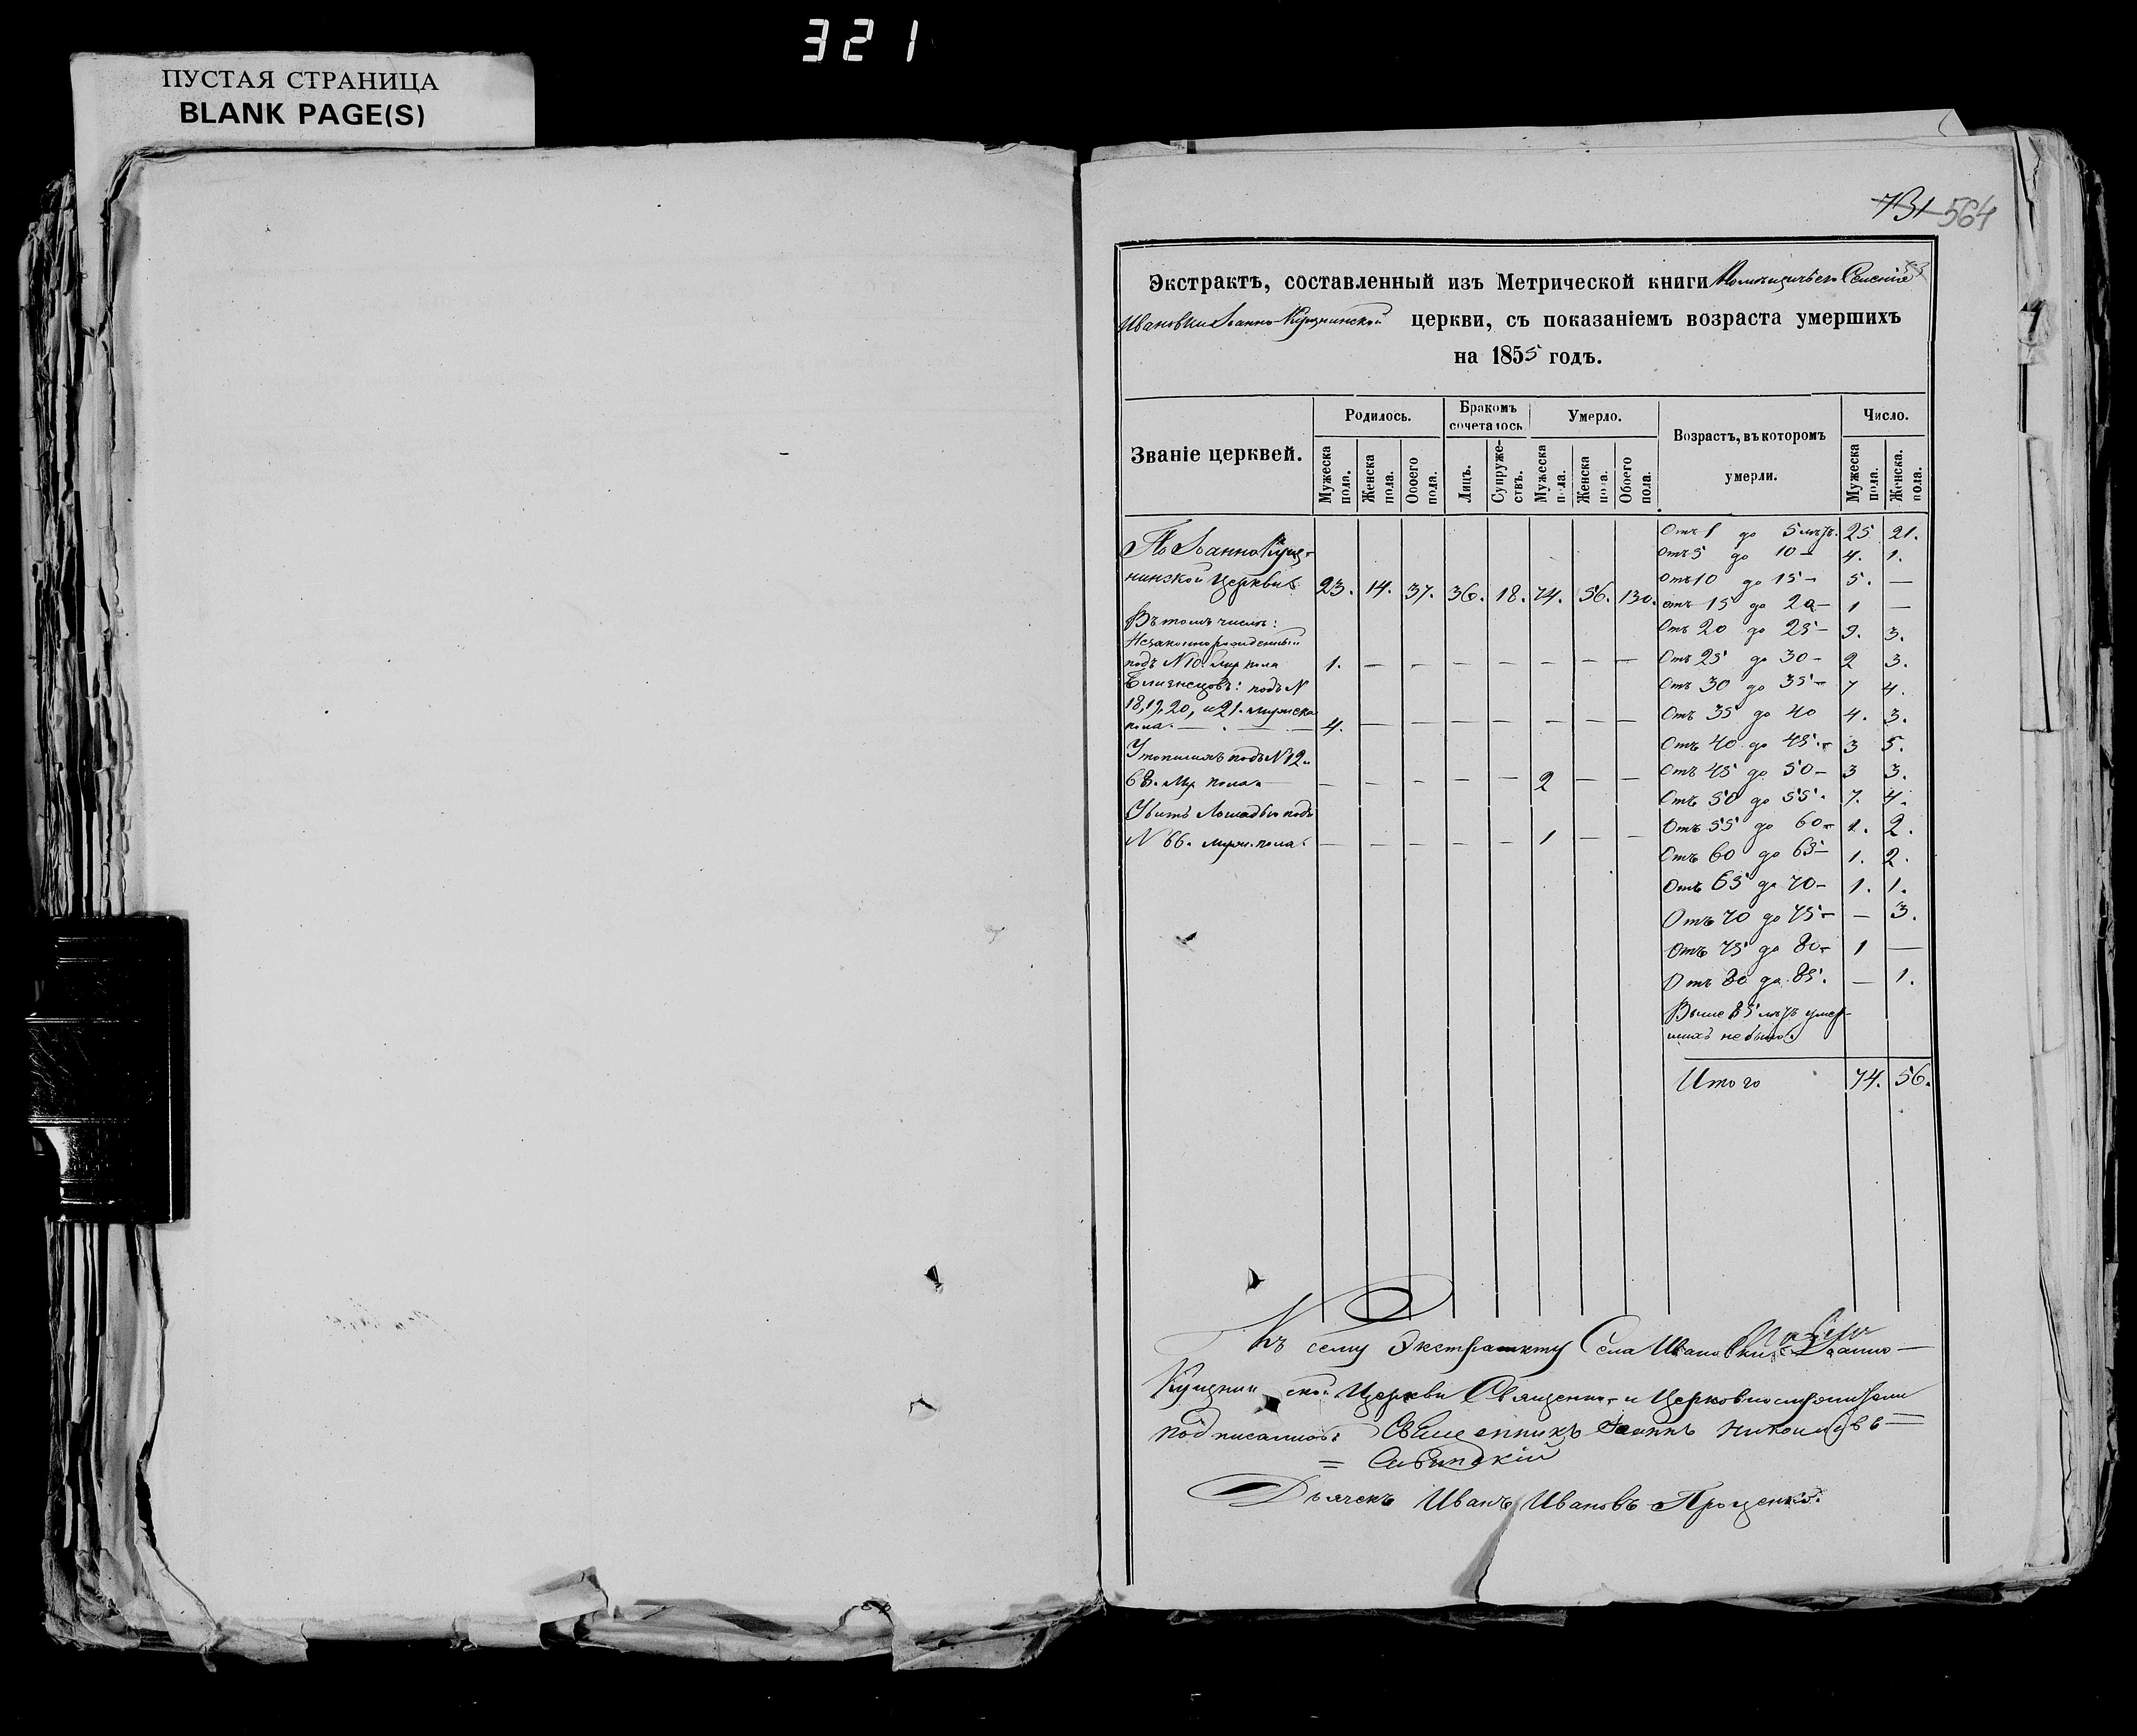 321
ПУСТАЯ СТРАНИЦА
BLANK PAGE(S)
731 564
Экстрактъ, составленный изъ Метрической книги
Ивановки Іоанно- церкви, съ показаніемъ возраста умершихъ
на 1855 годъ.
Званіе церквей.
Родилось.
Бракомъ сочеталось.
Умерло.
Возрастъ, въ которомъ умерли.
Число.
Мужеска пола.
Женска пола.
Обоего пола.
Лицъ.
Супруже-ствъ.
Мужеска пола.
Женска пола.
Обоего пола.
Мужеска пола.
Женска. пола.
По Іоанно
нинской Церкви 23. 14. 37. 36. 18. 74. 56. 130.
Въ томъ числѣ:
Незаконнорожденный
подъ N 10. муж пола 1. — — — — — — —
Близнецовъ: подъ N
18, 19, 20, и 21. мужеска
пола — 4. — — — — — — —
Утопшихъ подъ N 12 и
68. Муж пола — — — — — 2 — —
Убитъ Лошадью подъ
N 66. муж. пола. — — — — — 1 — —
Отъ 1 до 5 лѣтъ. 25 21.
Отъ 5 до 10 — 4. 1.
Отъ 10 до 15 — 5. —
Отъ 15 до 20 — 1 —
Отъ 20 до 25 — 9. 3.
Отъ 25 до 30 — 2 3.
Отъ 30 до 35 — 7 4.
Отъ 35 до 40 4. 3.
Отъ 40 до 45. — 3 5.
Отъ 45 до 50 — 3 3.
Отъ 50 до 55. 7. 4.
Отъ 55 до 60 — 1. 2.
Отъ 60 до 65 — 1. 2.
Отъ 65 до 70 — 1. 1.
Отъ 70 до 75 — — 3.
Отъ 75 до 80 — 1 —
Отъ 80 до 85. — 1.
Выше 85 лѣтъ умер-
шихъ не было.
Итого 74. 56.
Къ сему Экстракту Села Ивановки Іоанно —
Церкви Священно- и Церковнослужители
подписались: Священникъ Іоаннъ
= Савицкій
Дьячекъ Иванъ Ивановъ Проценко.